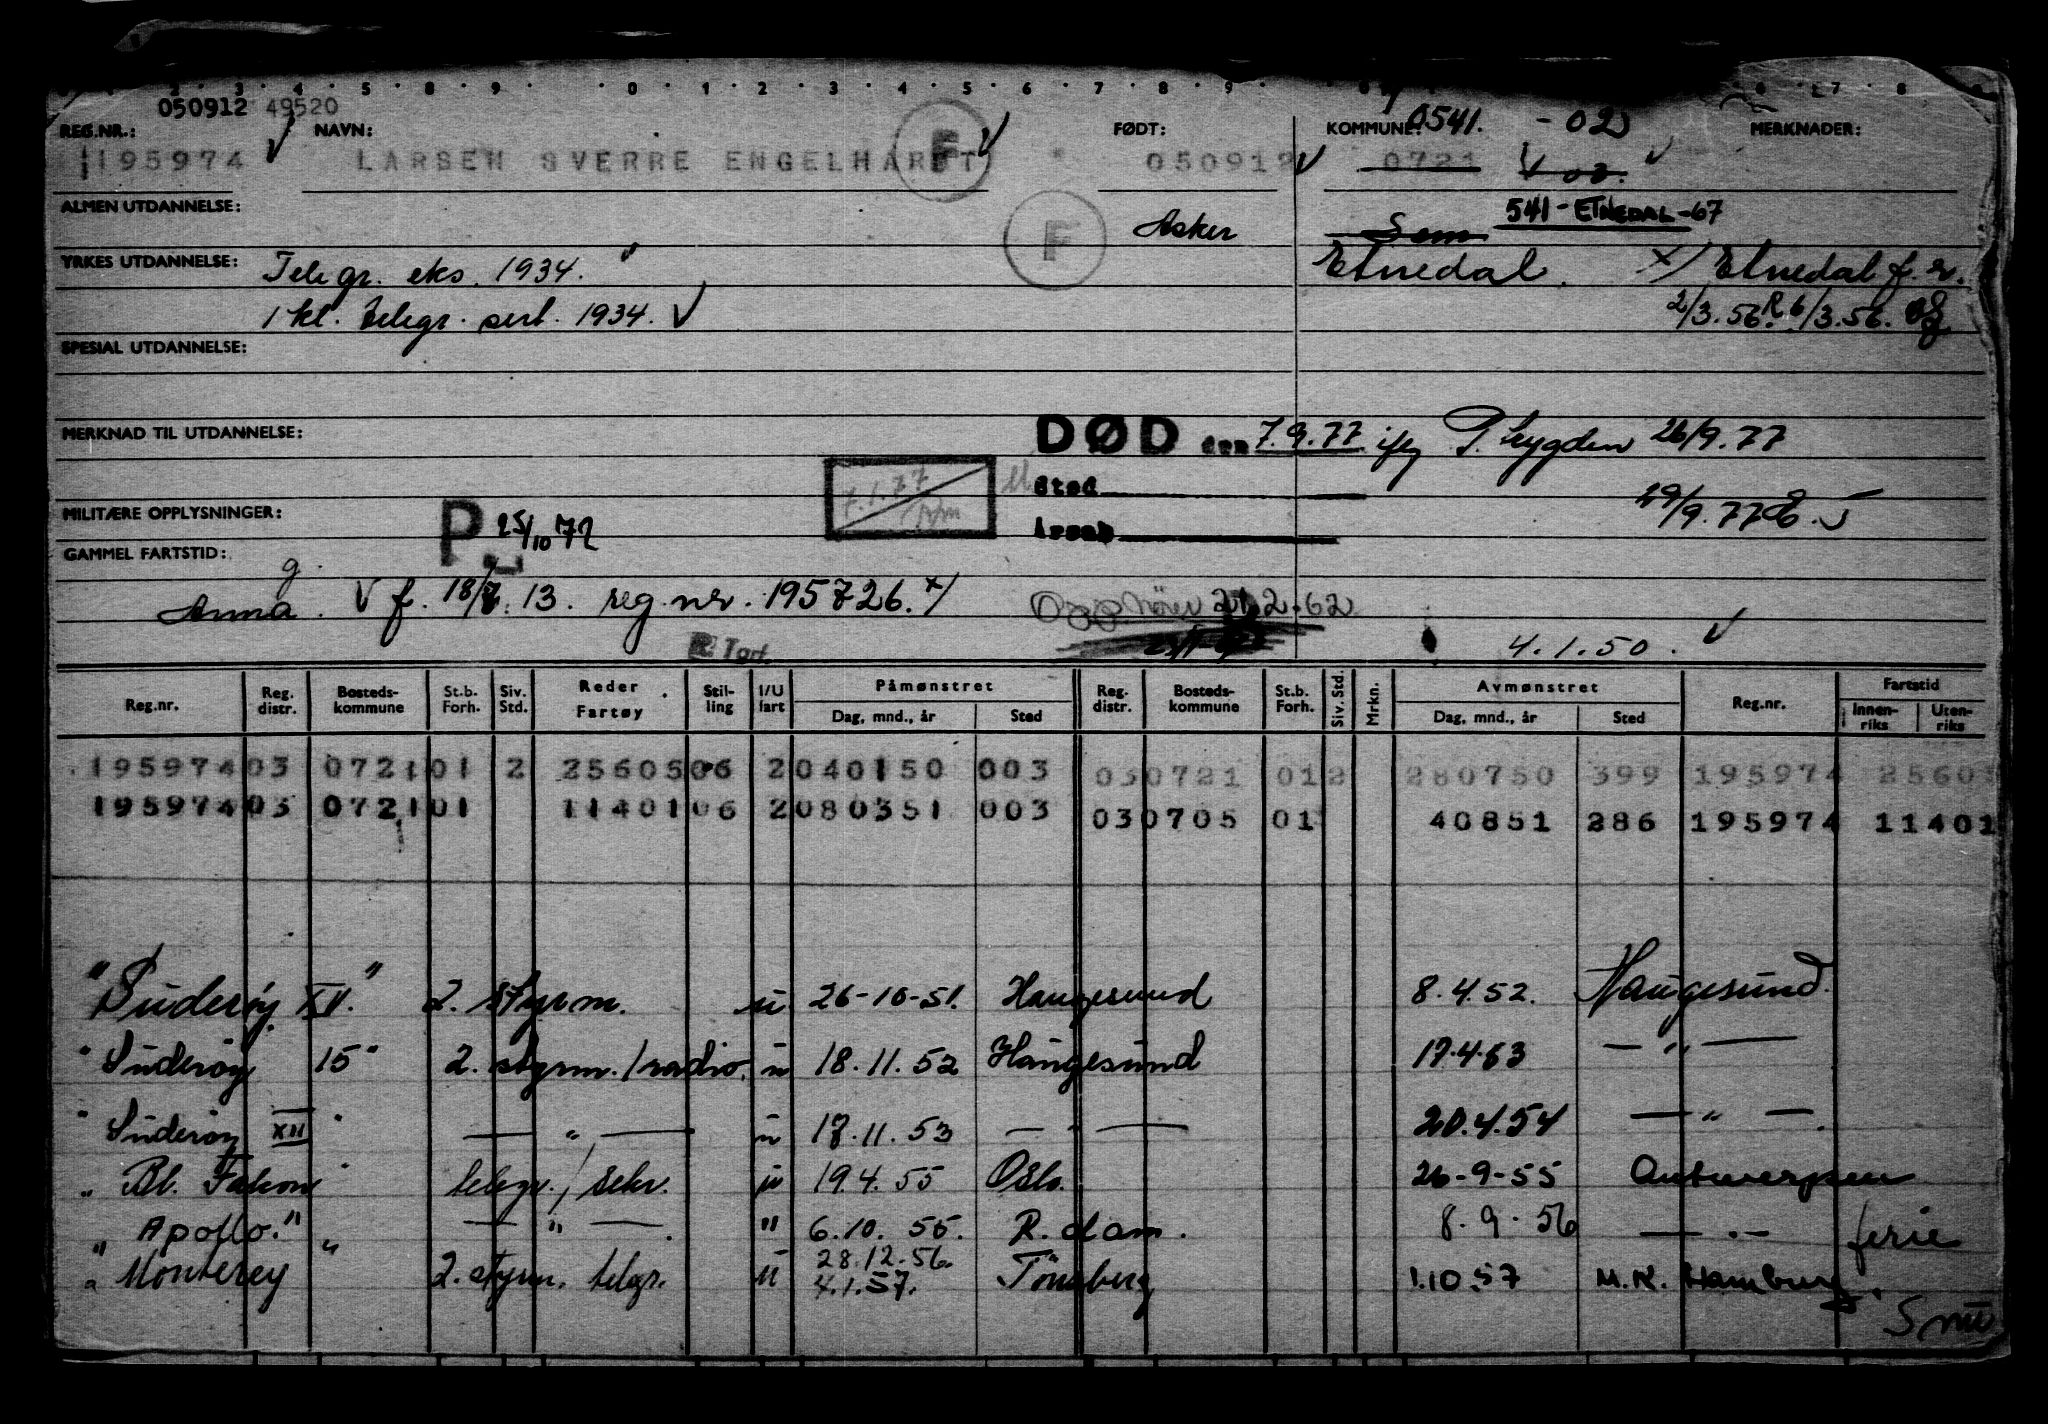 050912 49520
REG.NR.: NAVN: FØDT: KOMMUNE: 0541. - 02 MERKNADER:
195974 LARSEN SVERRE ENGELHARDT F 050912 0721 02.
ALMEN UTDANNELSE: F Asker Sem 541-ETNEDAL-67
YRKES UTDANNELSE: Telegr. eks. 1934. Etnedal. x/ Etnedal f. r.
1 kl. telegr. sert. 1934. 2/3.56. R 6/3.56.
SPESIAL UTDANNELSE:
MERKNAD TIL UTDANNELSE: DØD den 7.9.77 ifg P. trygden 26/9.77
7.1.77 Sted
MILITÆRE OPPLYSNINGER: P 25/10 72 Årsak 29/9.77
GAMMEL FARTSTID:
g.
Anna. f. 18/7. 13. reg.nr. 195726. x/ 2.62
R. Tart. 4.1.50.
Reg.nr. Reg. distr. Bosteds-kommune St.b. Forh. Siv. Std. Reder Fartøy Stil-ling I/U fart Påmønstret Dag, mnd., år Sted Reg. distr. Bosteds-kommune St.b. Forh. Siv. Std. Mrkn. Avmønstret Dag, mnd., år Sted Reg.nr. Fartstid Innen-riks Uten-riks
195974 03 0721 01 2 25605 06 2 040150 003 03 0721 01 2 280750 399 195974 2560
195974 03 0721 01 11401 06 2 080351 003 03 0705 01 40851 286 195974 11401
"Suderøy XV." 2. styrm. u 26-10-51. Haugesund 8.4.52. Haugesund.
"Suderøy 15" 2. styrm./radio. u 18.11.52 Haugesund 17.4.53 — " —
"Suderøy XII" — " — u 17.11.53 — " — 20.4.54 — " —
"Bl. Falcon" telegr./sekr. u 19.4.55 Oslo. 26-9-55 Antwerpen
"Apollo." — " — " 6.10.55. R.dam. 8.9.56 — " — ferie
"Monterey" 2. styrm. telgr. u 28.12.56. 4.1.57. Tönsberg 1.10.57 M.K. Hamburg.